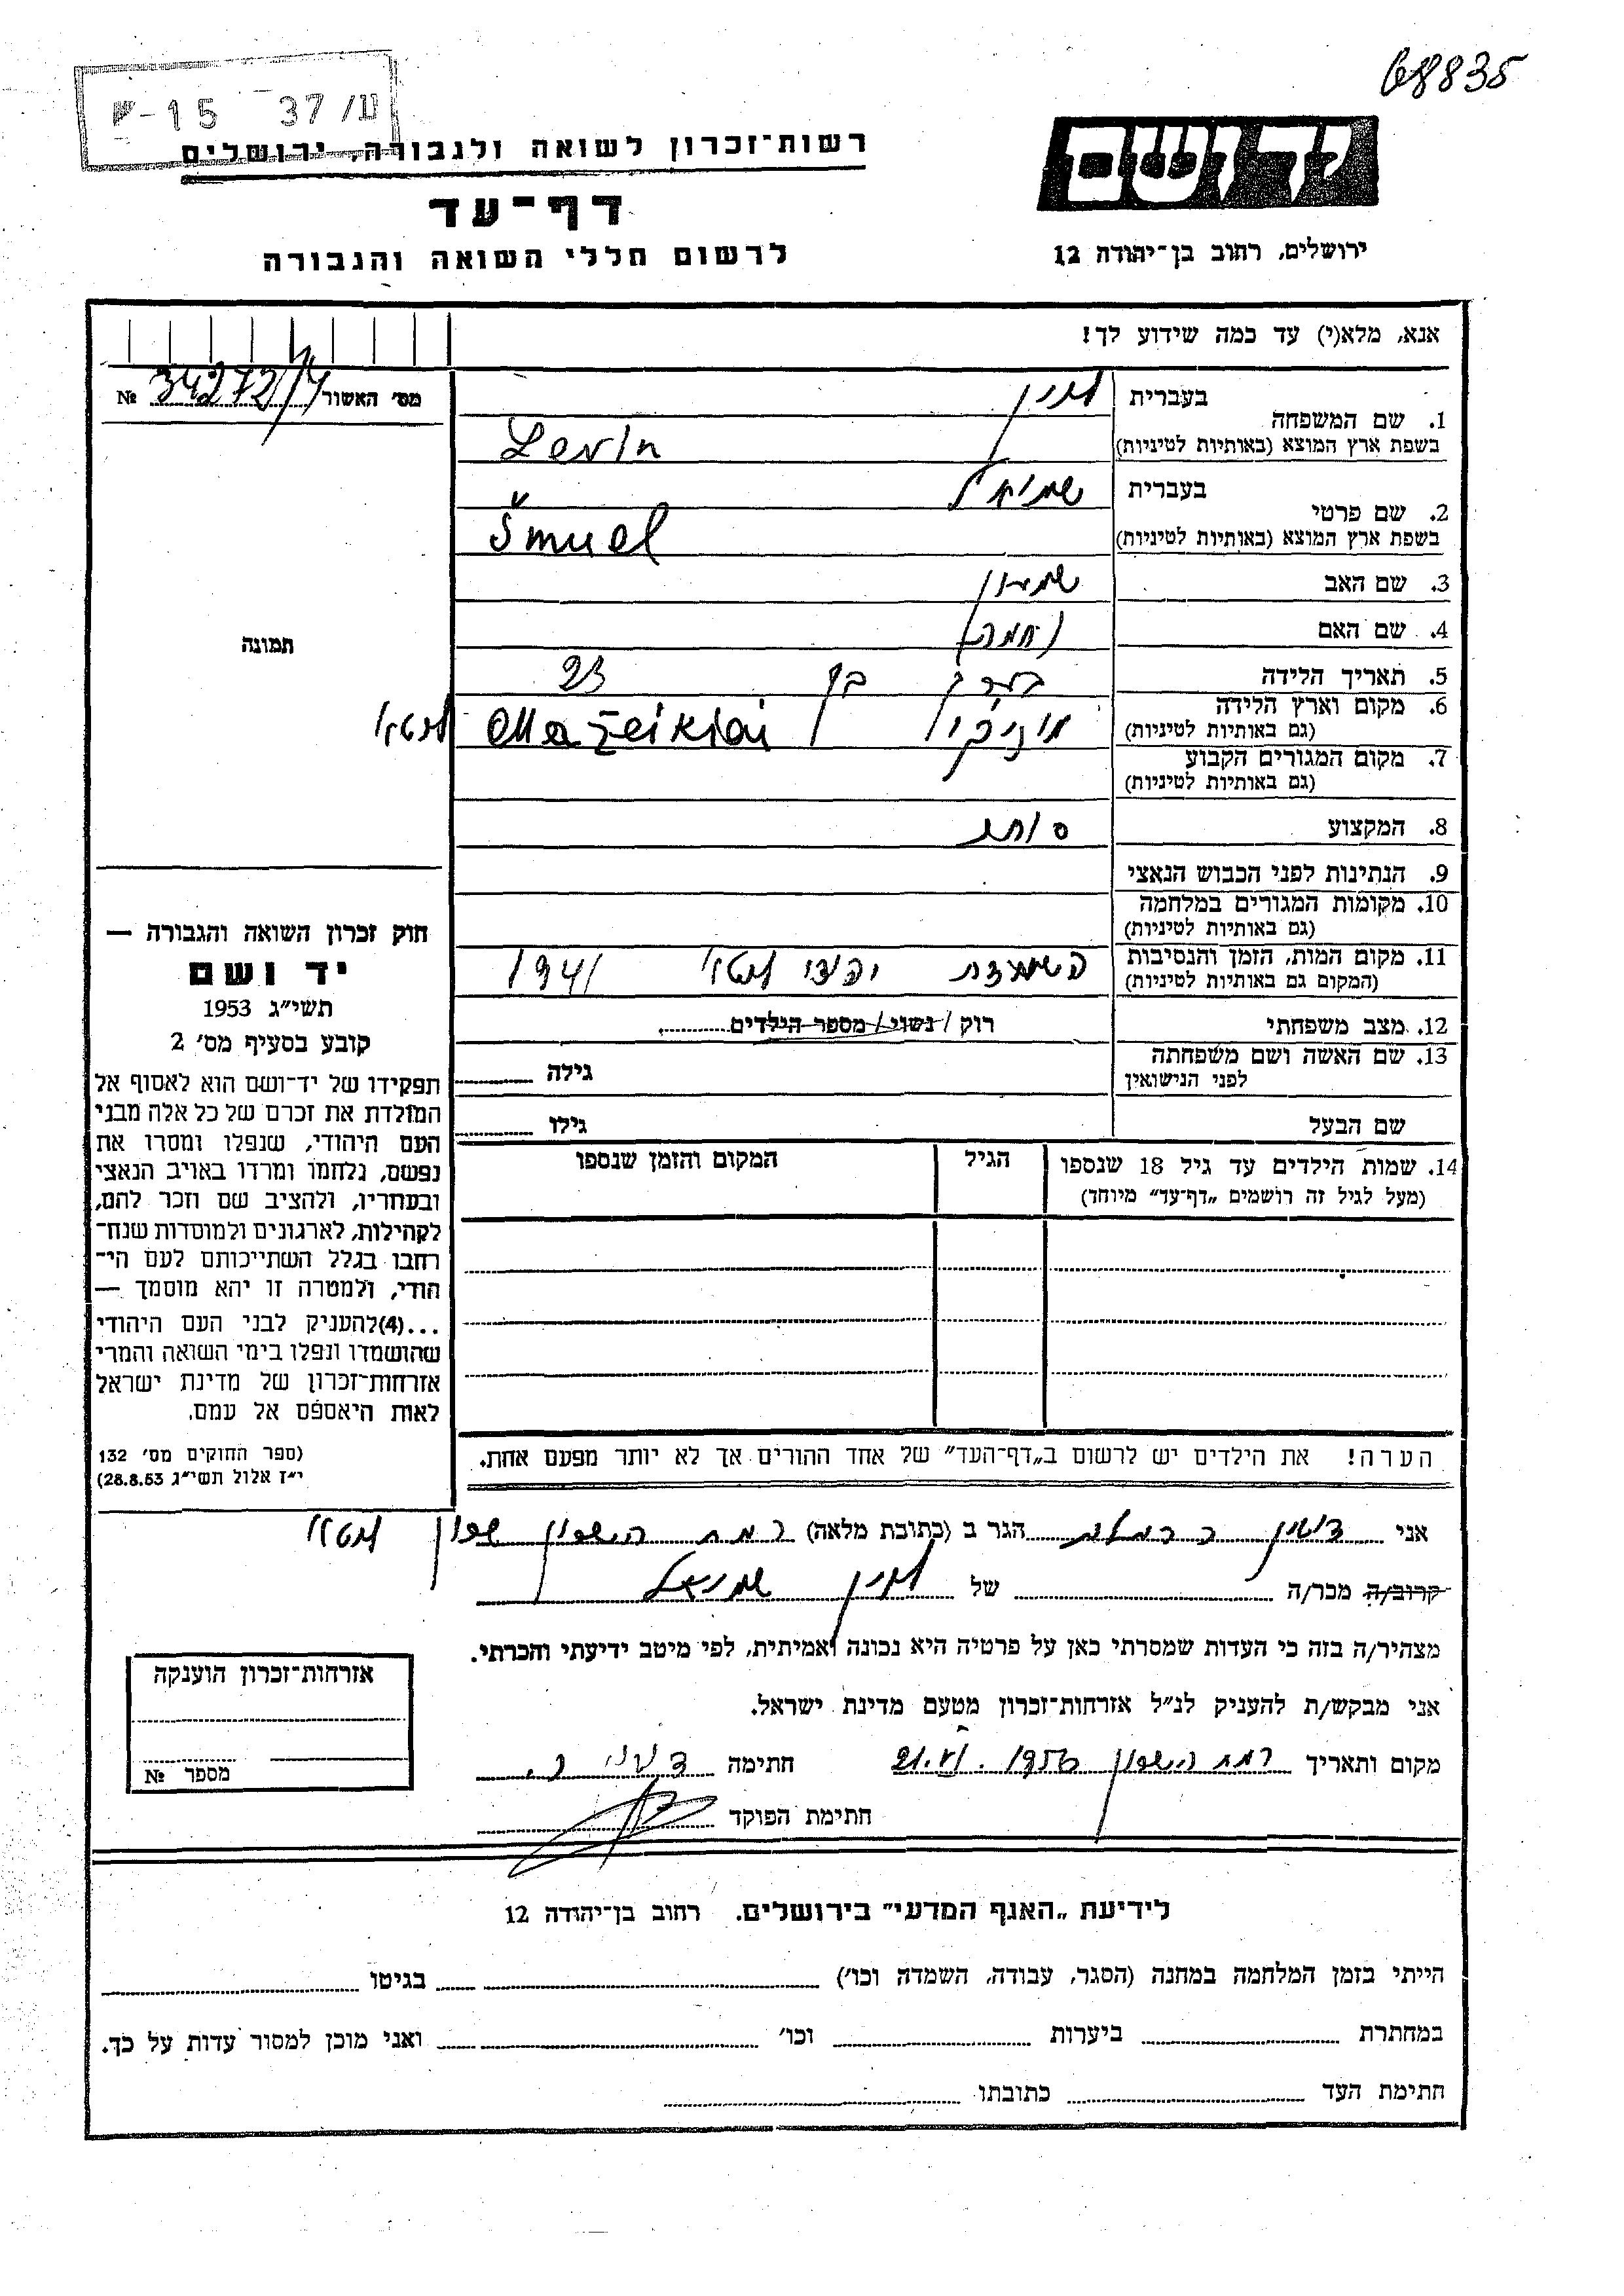 68835
ש-15 37/ע
רשות-זכרון לשואה ולגבורה, ירושלים
יד ושם
דף-עד
לרשום חללי השואה והגבורה
ירושלים, רחוב בן-יהודה 12
אנא, מלא(י) עד כמה שידוע לך!
מס' האשור 34272/4 №
בעברית לוין
1. שם המשפחה
בשפת ארץ המוצא (באותיות לטיניות) Levin
בעברית שמואל
2. שם פרטי
בשפת ארץ המוצא (באותיות לטיניות) Šmuel
3. שם האב שמעון
4. שם האם נחמה
תמונה
5. תאריך הלידה בערך בן 23
6. מקום וארץ הלידה
(גם באותיות לטיניות) Mažeikiai
7. מקום המגורים הקבוע
(גם באותיות לטיניות)
8. המקצוע סוחר
9. הנתינות לפני הכבוש הנאצי
10. מקומות המגורים במלחמה
(גם באותיות לטיניות)
11. מקום המות, הזמן והנסיבות
(המקום גם באותיות לטיניות) השמדת יהודי 1941
12. מצב משפחתי רוק / נשוי / מספר הילדים
13. שם האשה ושם משפחתה
לפני הנישואין גילה
שם הבעל גילו
14. שמות הילדים עד גיל 18 שנספו הגיל המקום והזמן שנספו
(מעל לגיל זה רושמים „דף-עד" מיוחד)
הערה! את הילדים יש לרשום ב„דף-העד" של אחד ההורים אך לא יותר מפעם אחת.
חוק זכרון השואה והגבורה —
יד ושם
תשי"ג 1953
קובע בסעיף מס' 2
תפקידו של יד-ושם הוא לאסוף אל
המולדת את זכרם של כל אלה מבני
העם היהודי, שנפלו ומסרו את
נפשם, נלחמו ומרדו באויב הנאצי
ובעוזריו, ולהציב שם וזכר להם,
לקהילות, לארגונים ולמוסדות שנח-
רבו בגלל השתייכותם לעם הי-
הודי, ולמטרה זו יהא מוסמך —
...(4)להעניק לבני העם היהודי
שהושמדו ונפלו בימי השואה והמרי
אזרחות-זכרון של מדינת ישראל
לאות היאספם אל עמם.
(ספר החוקים מס' 132
י"ז אלול תשי"ג 28.8.53)
אני הגר ב (כתובת מלאה) רמת השרון
קרוב/ה מכר/ה של לוין שמואל
מצהיר/ה בזה כי העדות שמסרתי כאן על פרטיה היא נכונה ואמיתית, לפי מיטב ידיעתי והכרתי.
אני מבקש/ת להעניק לנ"ל אזרחות-זכרון מטעם מדינת ישראל.
מקום ותאריך רמת השרון 21.VI.1956 חתימה
חתימת הפוקד
אזרחות-זכרון הוענקה
מספר №
לידיעת „האגף המדעי" בירושלים. רחוב בן-יהודה 12
הייתי בזמן המלחמה במחנה (הסגר, עבודה, השמדה וכו') בגיטו
במחתרת ביערות וכו' ואני מוכן למסור עדות על כך.
חתימת העד כתובתו